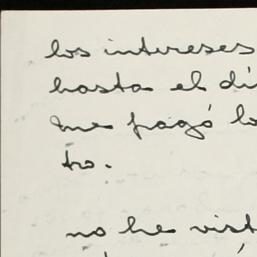 los intereses
hasta el dí
me pagó lo
tro.
no he vist